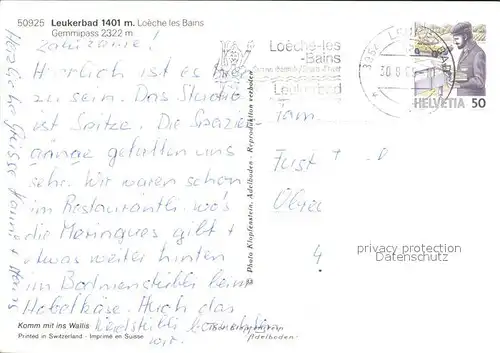 50925 Leukerbad 1401 m. Loèche les Bains
Gemmipass 2322 m
Herrlich ist es hier
zu sein. Das Studio
ist Spitze. Die Spazier-
gänge gefallen uns
sehr. Wir waren schon
im Restaurantli wo's
die Meringues gibt +
etwas weiter hinten
im Bodmenstübli beim
Hobelkäse. Auch das
wir.
Komm mit ins Wallis
Printed in Switzerland - Imprimé en Suisse
Herzliche Grüsse
© Photo Klopfenstein, Adelboden - Reproduktion verboten
Adelboden
Loèche-les
-Bains
Leukerbad
3954
30.8.
HELVETIA 50
Fam.
Fust +
4
privacy protection
Datenschutz